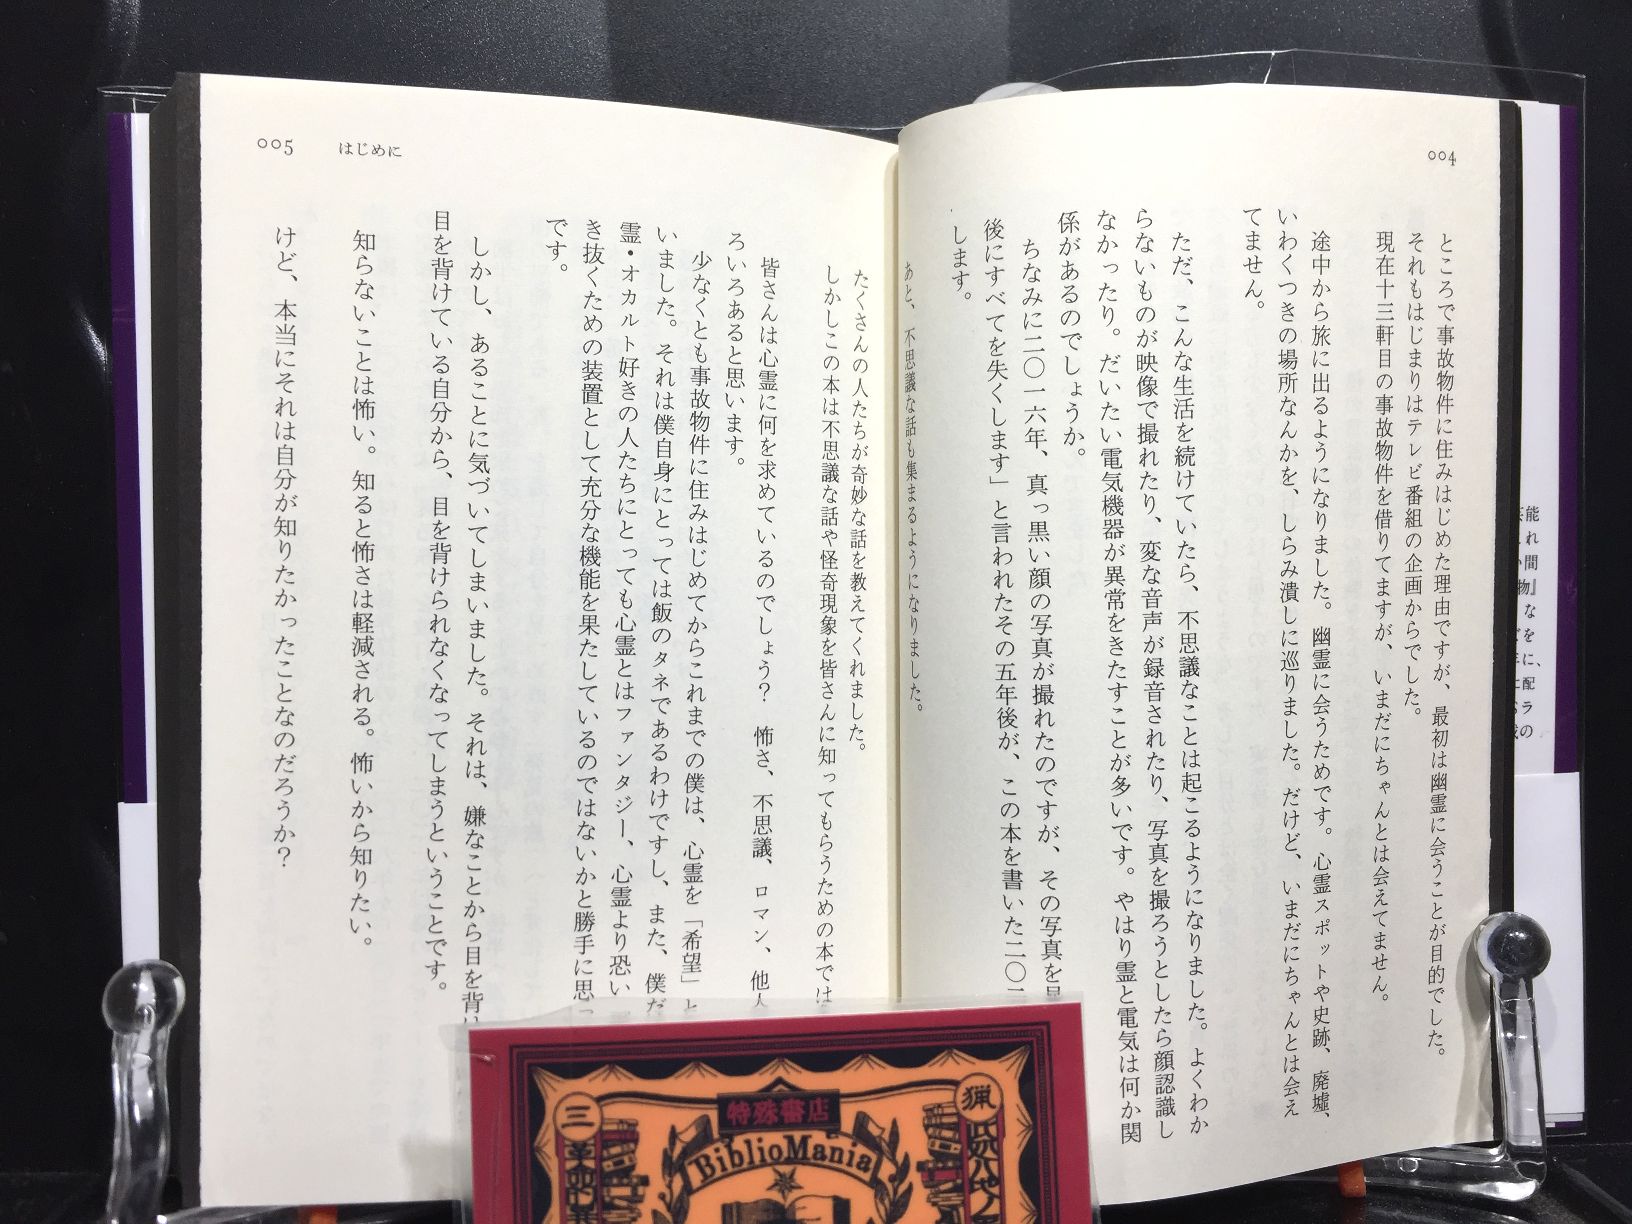 004
ところで事故物件に住みはじめた理由ですが、最初は幽霊に会うことが目的でした。
それもはじまりはテレビ番組の企画からでした。
現在十三軒目の事故物件を借りてますが、いまだにちゃんとは会えてません。
途中から旅に出るようになりました。幽霊に会うためです。心霊スポットや史跡、廃墟、
いわくつきの場所なんかを、しらみ潰しに巡りました。だけど、いまだにちゃんとは会え
てません。
ただ、こんな生活を続けていたら、不思議なことは起こるようになりました。よくわか
らないものが映像で撮れたり、変な音声が録音されたり、写真を撮ろうとしたら顔認識し
なかったり。だいたい電気機器が異常をきたすことが多いです。やはり霊と電気は何か関
係があるのでしょうか。
ちなみに二〇一六年、真っ黒い顔の写真が撮れたのですが、その写真を
後にすべてを失くします」と言われたその五年後が、この本を書いた二〇
します。
あと、不思議な話も集まるようになりました。
005 はじめに
たくさんの人たちが奇妙な話を教えてくれました。
しかしこの本は不思議な話や怪奇現象を皆さんに知ってもらうための本では
皆さんは心霊に何を求めているのでしょう? 怖さ、不思議、ロマン、他人
ろいろあると思います。
少なくとも事故物件に住みはじめてからこれまでの僕は、心霊を「希望」と
いました。それは僕自身にとっては飯のタネであるわけですし、また、僕だ
霊・オカルト好きの人たちにとっても心霊とはファンタジー、心霊より恐い
き抜くための装置として充分な機能を果たしているのではないかと勝手に思っ
です。
しかし、あることに気づいてしまいました。それは、嫌なことから目を背け
目を背けている自分から、目を背けられなくなってしまうということです。
知らないことは怖い。知ると怖さは軽減される。怖いから知りたい。
けど、本当にそれは自分が知りたかったことなのだろうか?
特殊書店
BiblioMania
猟
三